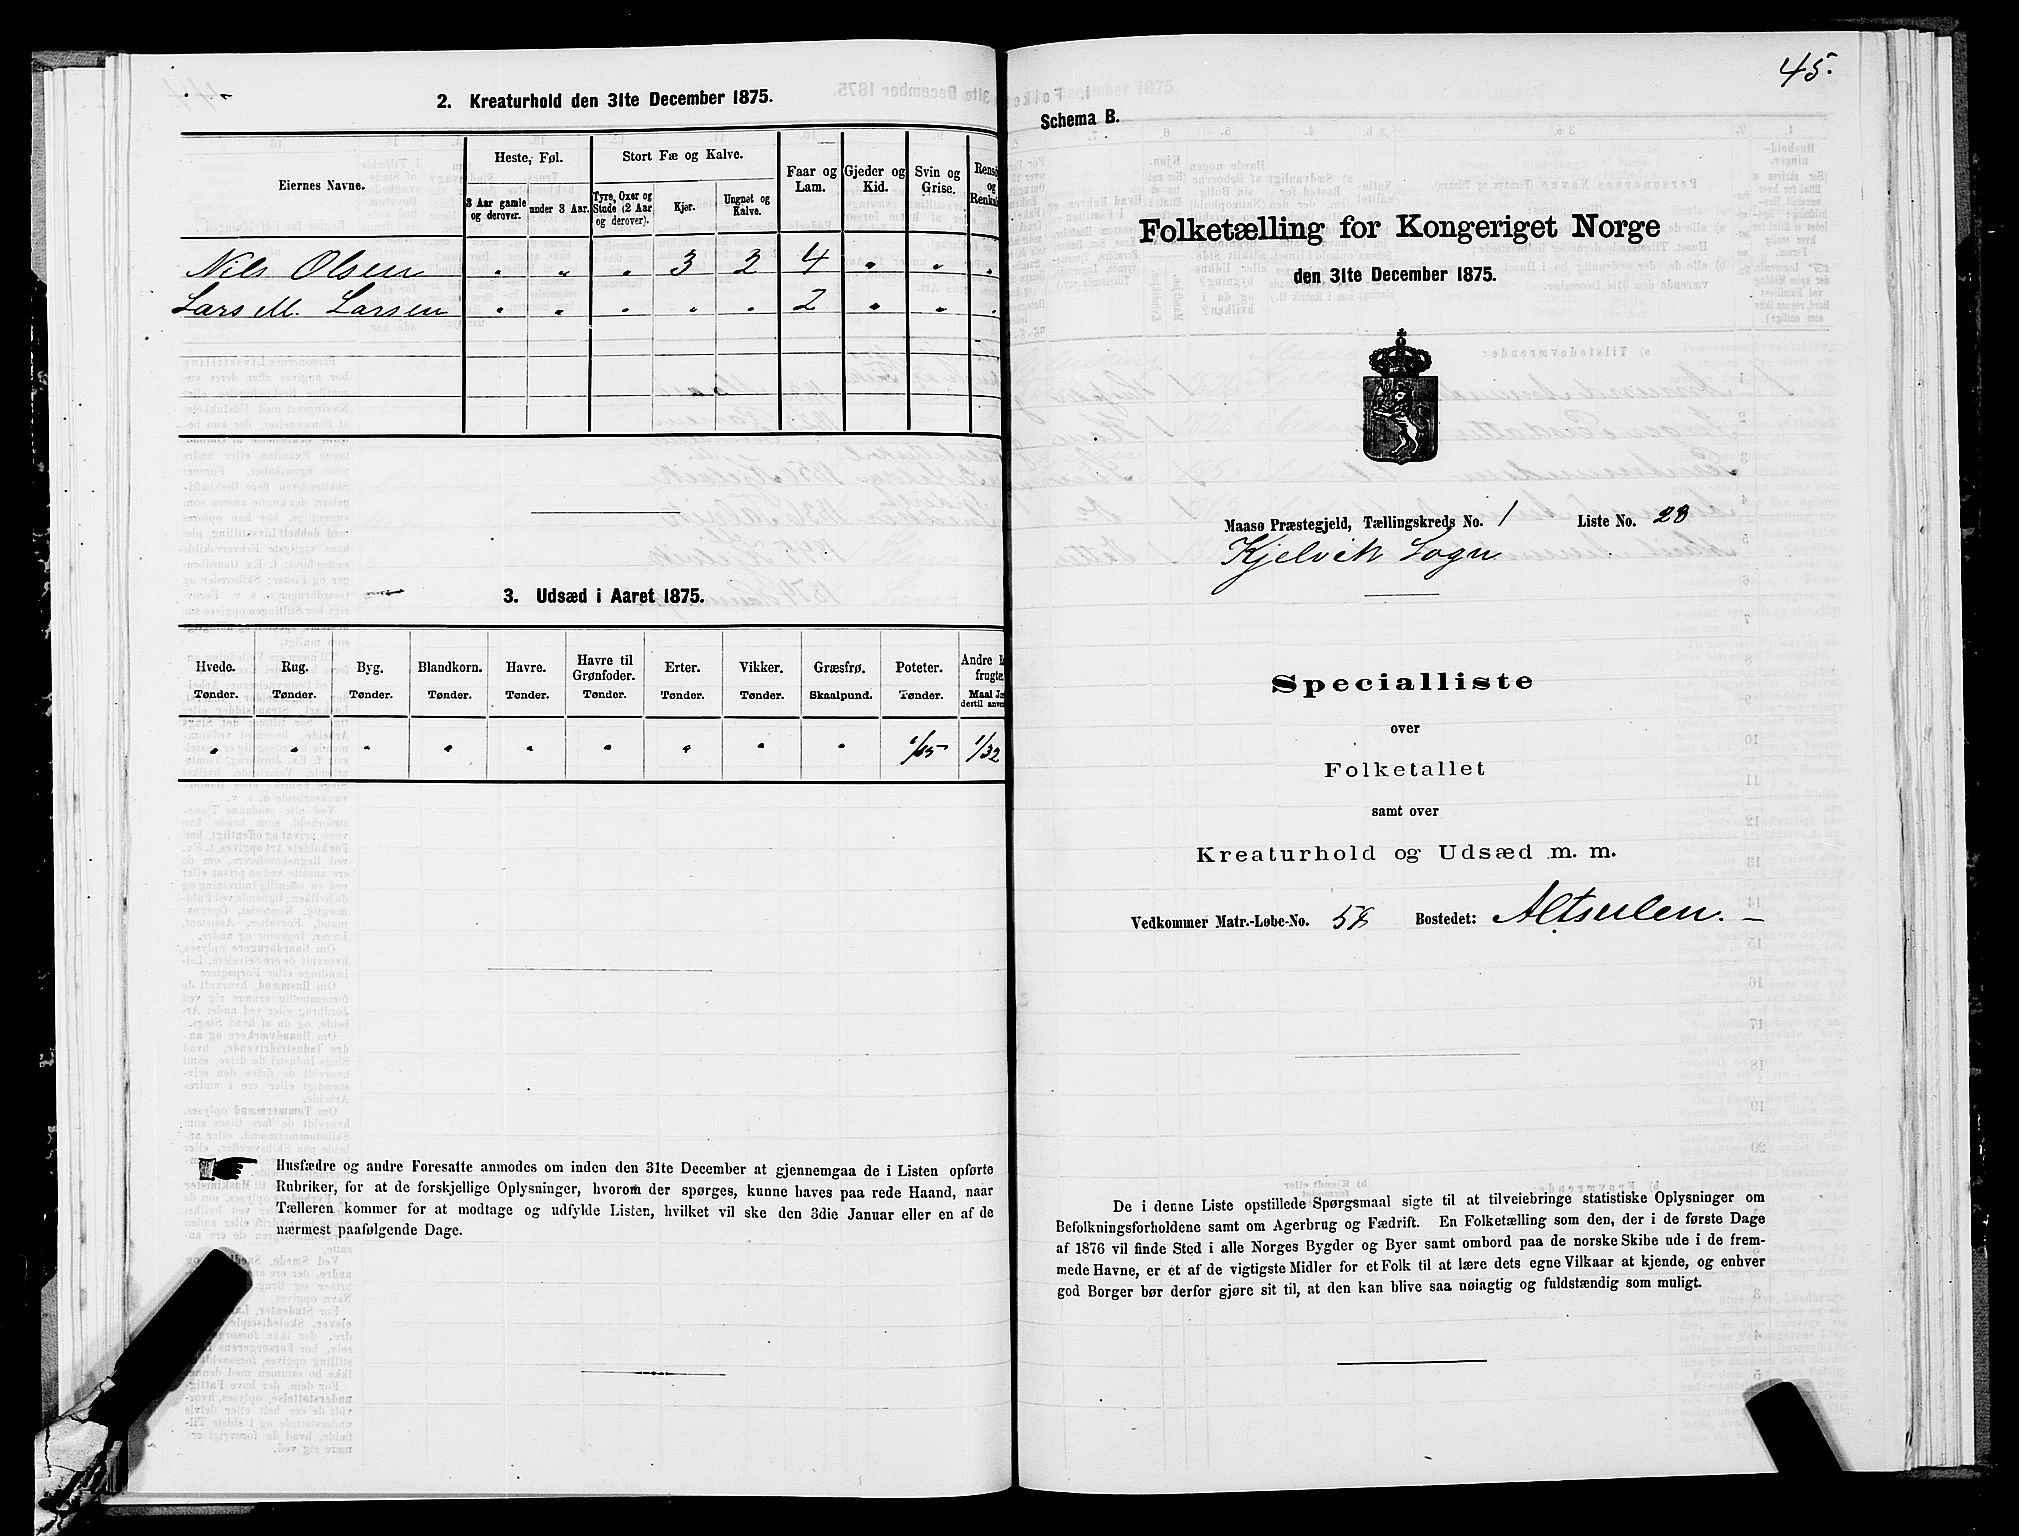 2. Kreaturhold den 31te December 1875.
Eiernes Navne.
Heste, Føl.
3 Aar gamle og derover.
under 3 Aar.
Stort Fæ og Kalve.
Tyre, Oxer og Stude (2 Aar og derover).
Kjør.
Ungnøt og Kalve.
Faar og Lam.
Gjeder og Kid.
Svin og Grise.
Rensd
og
Renkal
Nils Olsen " " " 3 2 4 " " "
Lars M. Larsen " " " " " 2 " " "
3. Udsæd i Aaret 1875.
Hvede. Rug. Byg. Blandkorn. Havre. Havre til Grønfoder. Erter. Vikker. Græsfrø. Poteter. Andre frugte
Tønder. Tønder. Tønder. Tønder. Tønder. Tønder. Tønder. Tønder. Skaalpund. Tønder. Maal
dertil anve
" " " " " " " " " 1/15 1/32
Husfædre og andre Foresatte anmodes om inden den 31te December at gjennemgaa de i Listen opførte
Rubriker, for at de forskjellige Oplysninger, hvorom der spørges, kunne haves paa rede Haand, naar
Tælleren kommer for at modtage og udfylde Listen, hvilket vil ske den 3die Januar eller en af de
nærmest paafølgende Dage.
45.
Schema B.
Folketælling for Kongeriget Norge
den 31te December 1875.
Maasø Præstegjeld, Tællingskreds No. 1 Liste No. 28
Kjelvik Sogn
Specialliste
over
Folketallet
samt over
Kreaturhold og Udsæd m. m.
Vedkommer Matr.-Løbe-No. 58 Bostedet: Altsulen.
De i denne Liste opstillede Spørgsmaal sigte til at tilveiebringe statistiske Oplysninger om
Befolkningsforholdene samt om Agerbrug og Fædrift. En Folketælling som den, der i de første Dage
af 1876 vil finde Sted i alle Norges Bygder og Byer samt ombord paa de norske Skibe ude i de frem-
mede Havne, er et af de vigtigste Midler for et Folk til at lære dets egne Vilkaar at kjende, og enhver
god Borger bør derfor gjøre sit til, at den kan blive saa nøiagtig og fuldstændig som muligt.